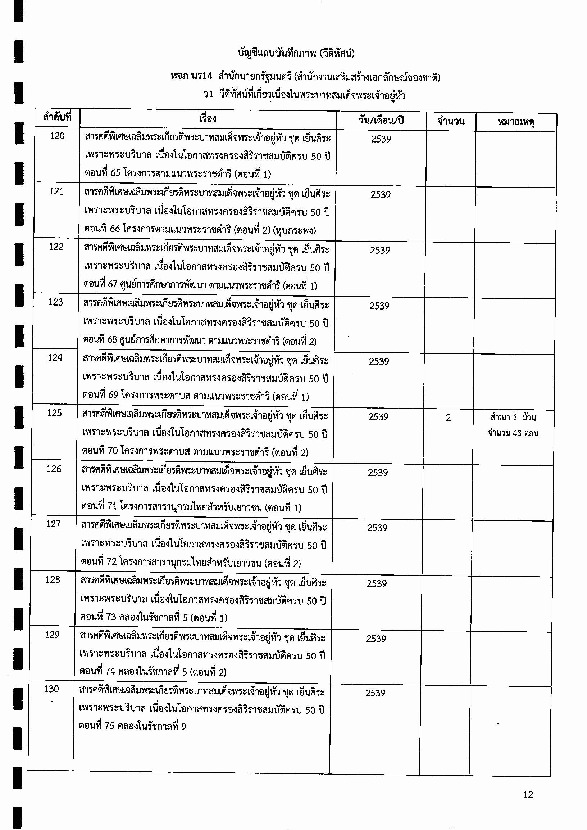 บัญชีแถบบันทึกภาพ (วีดิทัศน์)
หจภ นร14 สำนักนายกรัฐมนตรี (สำนักงานเสริมสร้างเอกลักษณ์ของชาติ)
ว1 วีดิทัศน์ที่เกี่ยวเนื่องในพระบาทสมเด็จพระเจ้าอยู่หัว
ลำดับที่ เรื่อง วัน/เดือน/ปี จำนวน หมายเหตุ
120 สารคดีพิเศษเฉลิมพระเกียรติพระบาทสมเด็จพระเจ้าอยู่หัว ชุด เย็นศิระ 2539
เพราะพระบริบาล เนื่องในโอกาสทรงครองสิริราชสมบัติครบ 50 ปี
ตอนที่ 65 โครงการตามแนวพระราชดำริ (ตอนที่ 1)
121 สารคดีพิเศษเฉลิมพระเกียรติพระบาทสมเด็จพระเจ้าอยู่หัว ชุด เย็นศิระ 2539
เพราะพระบริบาล เนื่องในโอกาสทรงครองสิริราชสมบัติครบ 50 ปี
ตอนที่ 66 โครงการตามแนวพระราชดำริ (ตอนที่ 2) (หุบกะพง)
122 สารคดีพิเศษเฉลิมพระเกียรติพระบาทสมเด็จพระเจ้าอยู่หัว ชุด เย็นศิระ 2539
เพราะพระบริบาล เนื่องในโอกาสทรงครองสิริราชสมบัติครบ 50 ปี
ตอนที่ 67 ศูนย์การศึกษาการพัฒนา ตามแนวพระราชดำริ (ตอนที่ 1)
123 สารคดีพิเศษเฉลิมพระเกียรติพระบาทสมเด็จพระเจ้าอยู่หัว ชุด เย็นศิระ 2539
เพราะพระบริบาล เนื่องในโอกาสทรงครองสิริราชสมบัติครบ 50 ปี
ตอนที่ 68 ศูนย์การศึกษาการพัฒนา ตามแนวพระราชดำริ (ตอนที่ 2)
124 สารคดีพิเศษเฉลิมพระเกียรติพระบาทสมเด็จพระเจ้าอยู่หัว ชุด เย็นศิระ 2539
เพราะพระบริบาล เนื่องในโอกาสทรงครองสิริราชสมบัติครบ 50 ปี
ตอนที่ 69 โครงการพระดาบส ตามแนวพระราชดำริ (ตอนที่ 1)
125 สารคดีพิเศษเฉลิมพระเกียรติพระบาทสมเด็จพระเจ้าอยู่หัว ชุด เย็นศิระ 2539 2 สำเนา 1 ม้วน
เพราะพระบริบาล เนื่องในโอกาสทรงครองสิริราชสมบัติครบ 50 ปี จำนวน 43 ตอน
ตอนที่ 70 โครงการพระดาบส ตามแนวพระราชดำริ (ตอนที่ 2)
126 สารคดีพิเศษเฉลิมพระเกียรติพระบาทสมเด็จพระเจ้าอยู่หัว ชุด เย็นศิระ 2539
เพราะพระบริบาล เนื่องในโอกาสทรงครองสิริราชสมบัติครบ 50 ปี
ตอนที่ 71 โครงการสารานุกรมไทยสำหรับเยาวชน (ตอนที่ 1)
127 สารคดีพิเศษเฉลิมพระเกียรติพระบาทสมเด็จพระเจ้าอยู่หัว ชุด เย็นศิระ 2539
เพราะพระบริบาล เนื่องในโอกาสทรงครองสิริราชสมบัติครบ 50 ปี
ตอนที่ 72 โครงการสารานุกรมไทยสำหรับเยาวชน (ตอนที่ 2)
128 สารคดีพิเศษเฉลิมพระเกียรติพระบาทสมเด็จพระเจ้าอยู่หัว ชุด เย็นศิระ 2539
เพราะพระบริบาล เนื่องในโอกาสทรงครองสิริราชสมบัติครบ 50 ปี
ตอนที่ 73 คลองในรัชกาลที่ 5 (ตอนที่ 1)
129 สารคดีพิเศษเฉลิมพระเกียรติพระบาทสมเด็จพระเจ้าอยู่หัว ชุด เย็นศิระ 2539
เพราะพระบริบาล เนื่องในโอกาสทรงครองสิริราชสมบัติครบ 50 ปี
ตอนที่ 74 คลองในรัชกาลที่ 5 (ตอนที่ 2)
130 สารคดีพิเศษเฉลิมพระเกียรติพระบาทสมเด็จพระเจ้าอยู่หัว ชุด เย็นศิระ 2539
เพราะพระบริบาล เนื่องในโอกาสทรงครองสิริราชสมบัติครบ 50 ปี
ตอนที่ 75 คลองในรัชกาลที่ 9
12